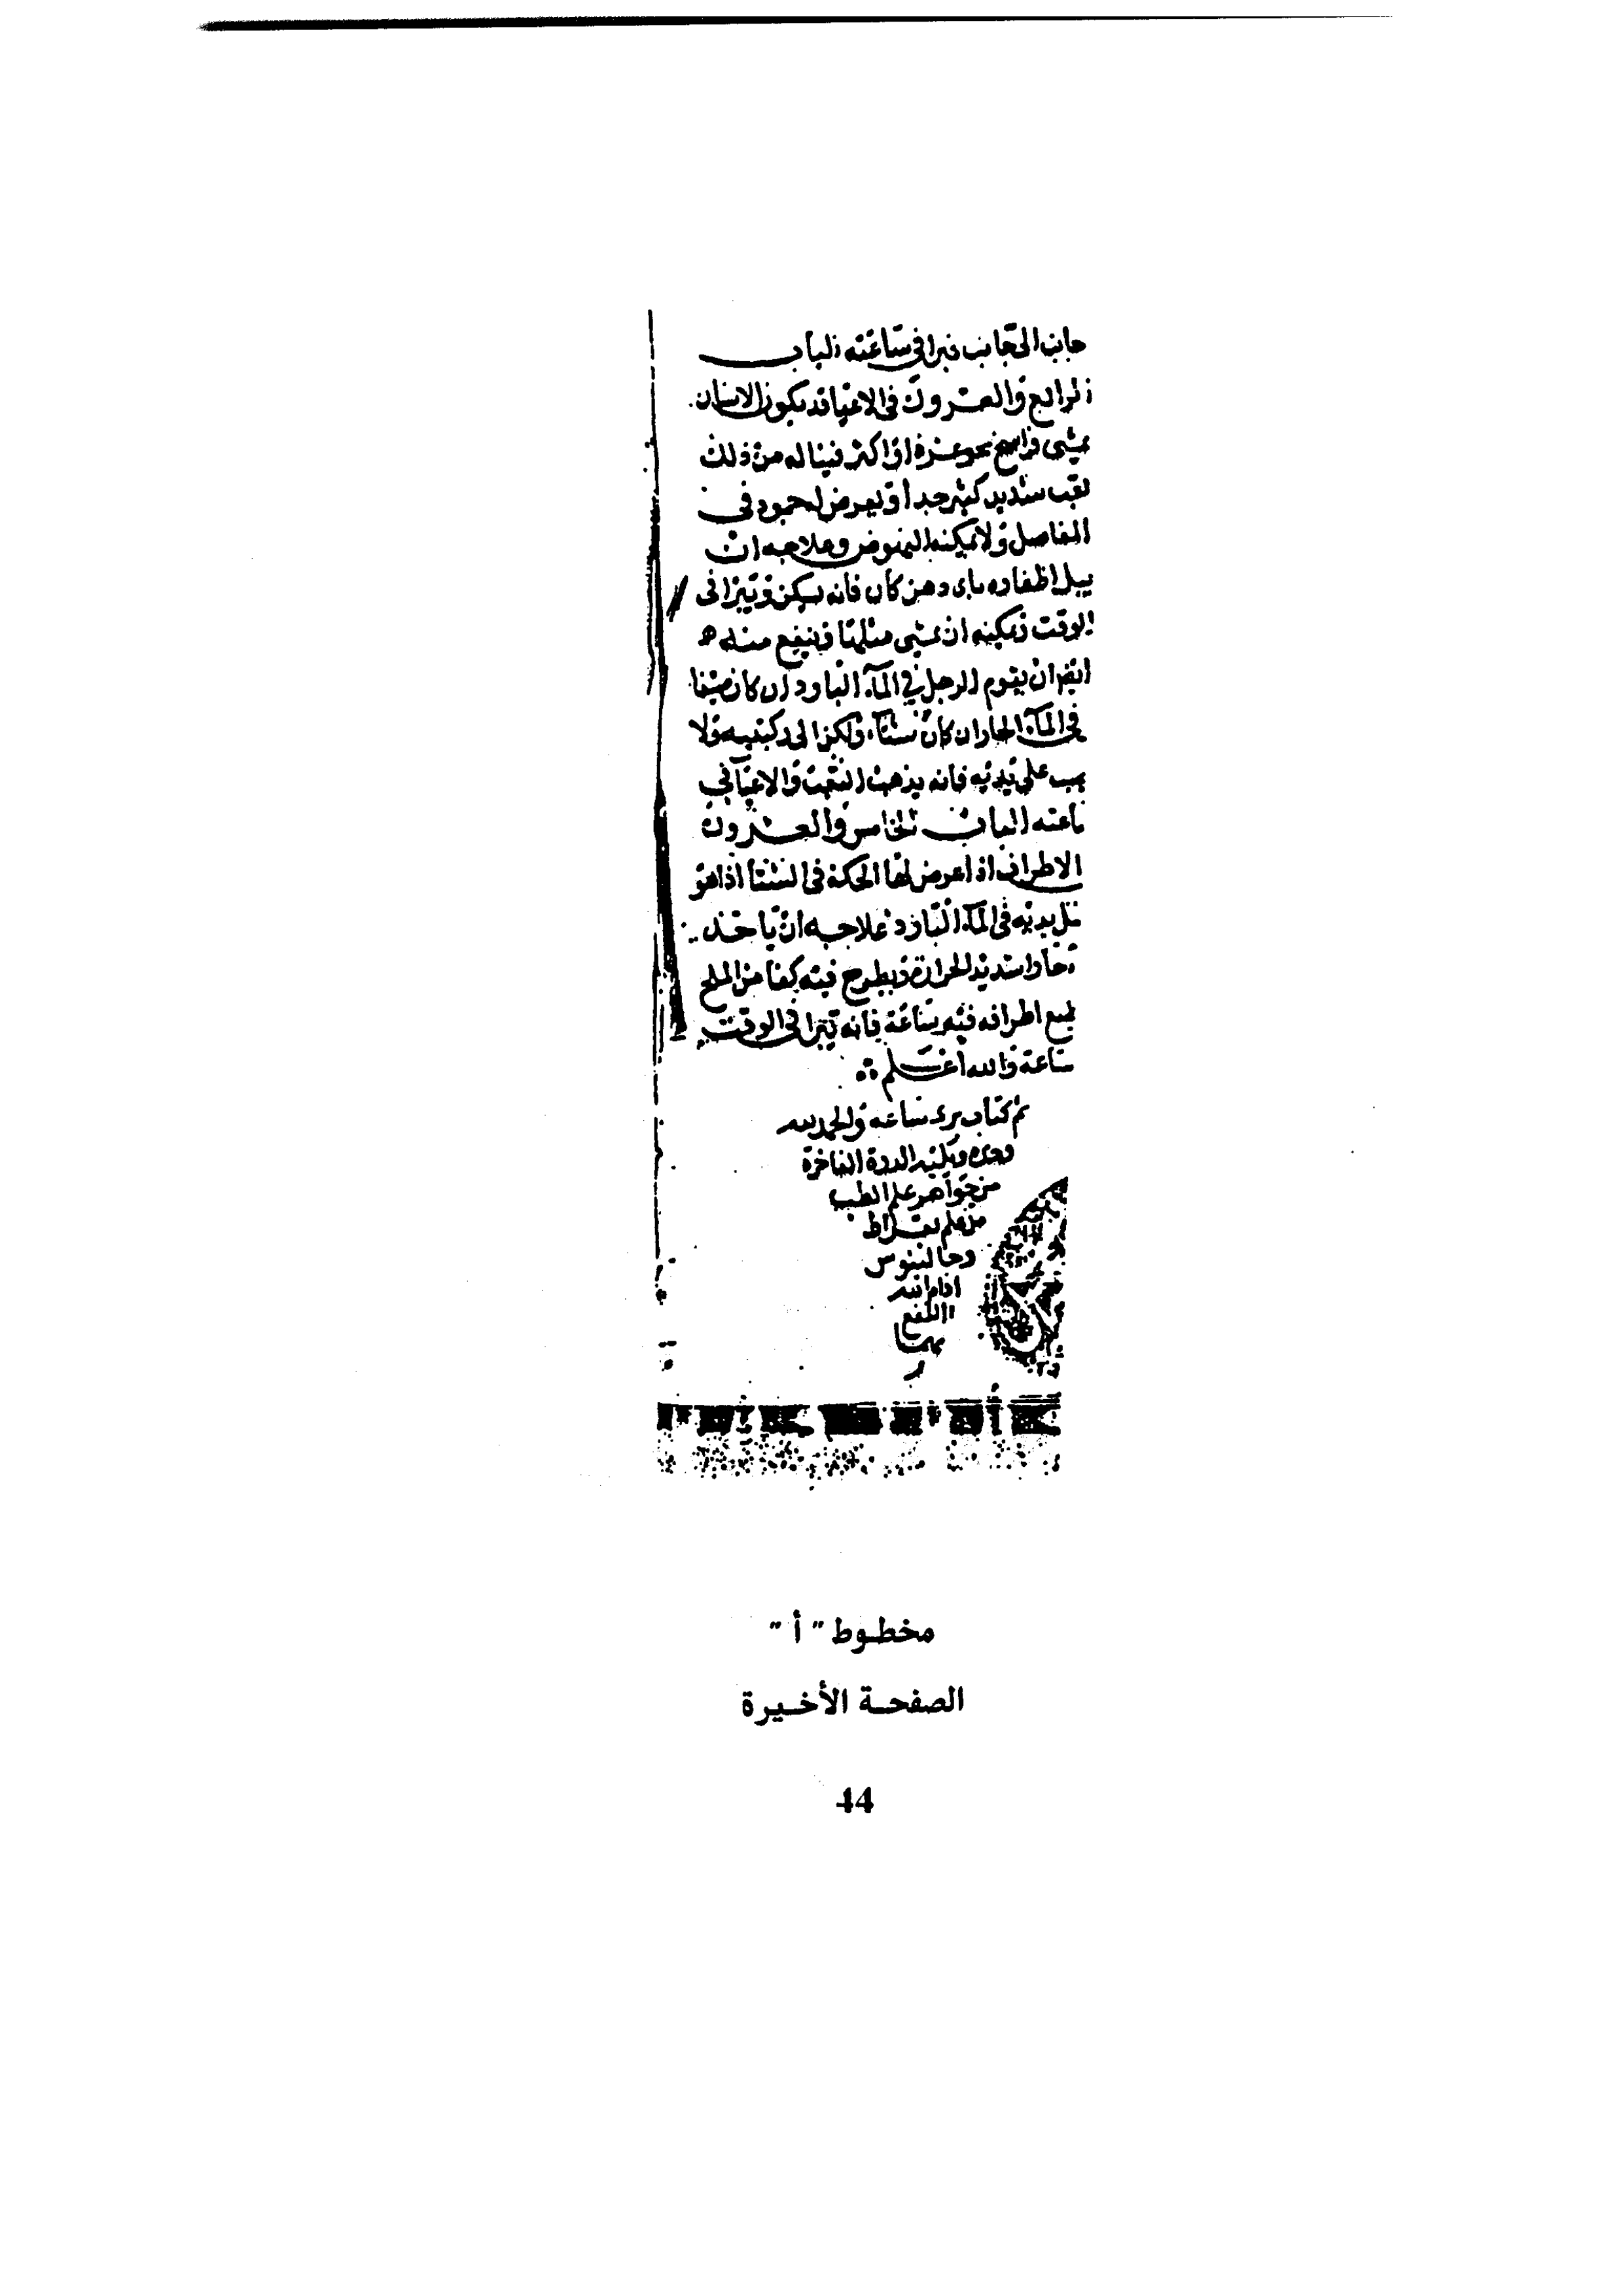 جانب الى جانب فيبرا في ساعته الباب
الرابع والعشرون في الاعيا قد يكون الانسان
يمشي فراسخ نحو عشرة او اكثر فيناله من ذلك
تعب شديد كثير جدا او يعرض له جمود في
المفاصل ولا يمكنه النهوض وعلاجه ان
يبل اظفاره باى دهن كان فانه يسكن ويبرا في
الوقت ويمكنه ان يمشي مثلها وينفع منه
ايضا ان يقوم الرجل في الماء البارد ان كان صيفا
في الماء الحار ان كان شتاء ولكن الى ركبتيه ولا
على يديه فانه يذهب التعب والاعيا في
الباب الخامس والعشرون
الاطراف اذا عرض لها الحكة في الشتا اذا هو
يديه في الماء البارد علاجه ان ياخذ
شديد الحرارة ويطرح فيه كفا من الملح
اطرافه فيه ساعة فانه يبرا في الوقت
ساعة والله اعلم
تم كتاب برء ساعة والحمد لله
وحده ويليه الدرة الفاخرة
من جواهر علم الطب
من علم بقراط
وجالينوس
ادام الله
النفع
بهما
مخطوط " أ "
الصفحة الأخيرة
44